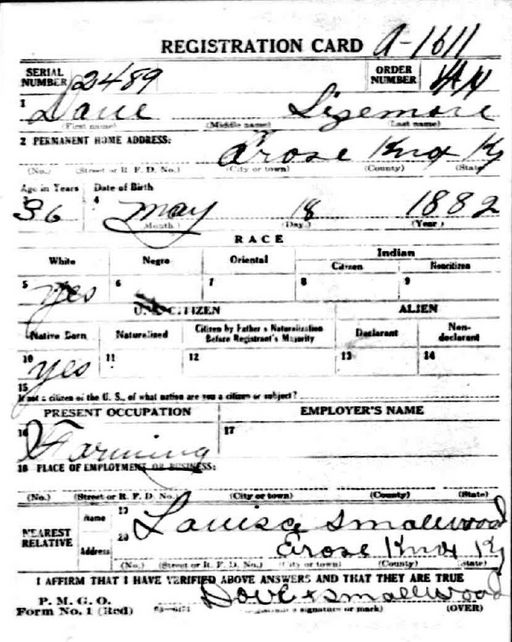 REGISTRATION CARD A-1611
SERIAL NUMBER 2489 ORDER NUMBER
1 Sizemore
(First name) (Middle name) Last name)
2 PERMANENT HOME ADDRESS:
Erose Knox Ky
(No.) (Street or R. F. D. No.) (City or town) (County) (State)
Age in Years Date of Birth
36 4 May 18 1882
(Month.) (Day.) (Year.)
RACE
White Negro Oriental Indian
Citizen Noncitizen
5 Yes 6 7 8 9
U. S. CITIZEN ALIEN
Native Born Naturalized Citizen by Father's Naturalization Before Registrant's Majority Declarant Non-declarant
10 yes 11 12 13 14
15
If not a citizen of the U. S., of what nation are you a citizen or subject?
PRESENT OCCUPATION EMPLOYER'S NAME
16 Farming 17
18 PLACE OF EMPLOYMENT OR BUSINESS:
(No.) (Street or R. F. D. No.) (City or town) (County) (State)
NEAREST RELATIVE Name 19 Louisa Smallwood
Address 20 Erose Knox Ky
(No.) (Street or R. F. D. No.) (City or town) (County) (State)
I AFFIRM THAT I HAVE VERIFIED ABOVE ANSWERS AND THAT THEY ARE TRUE
P. M. G. O.
Form No. 1 (Red) x Smallwood
signature or mark) (OVER)